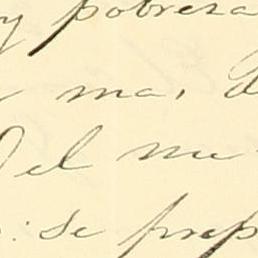 y pobreza
ma, d
Del me
: Se prep